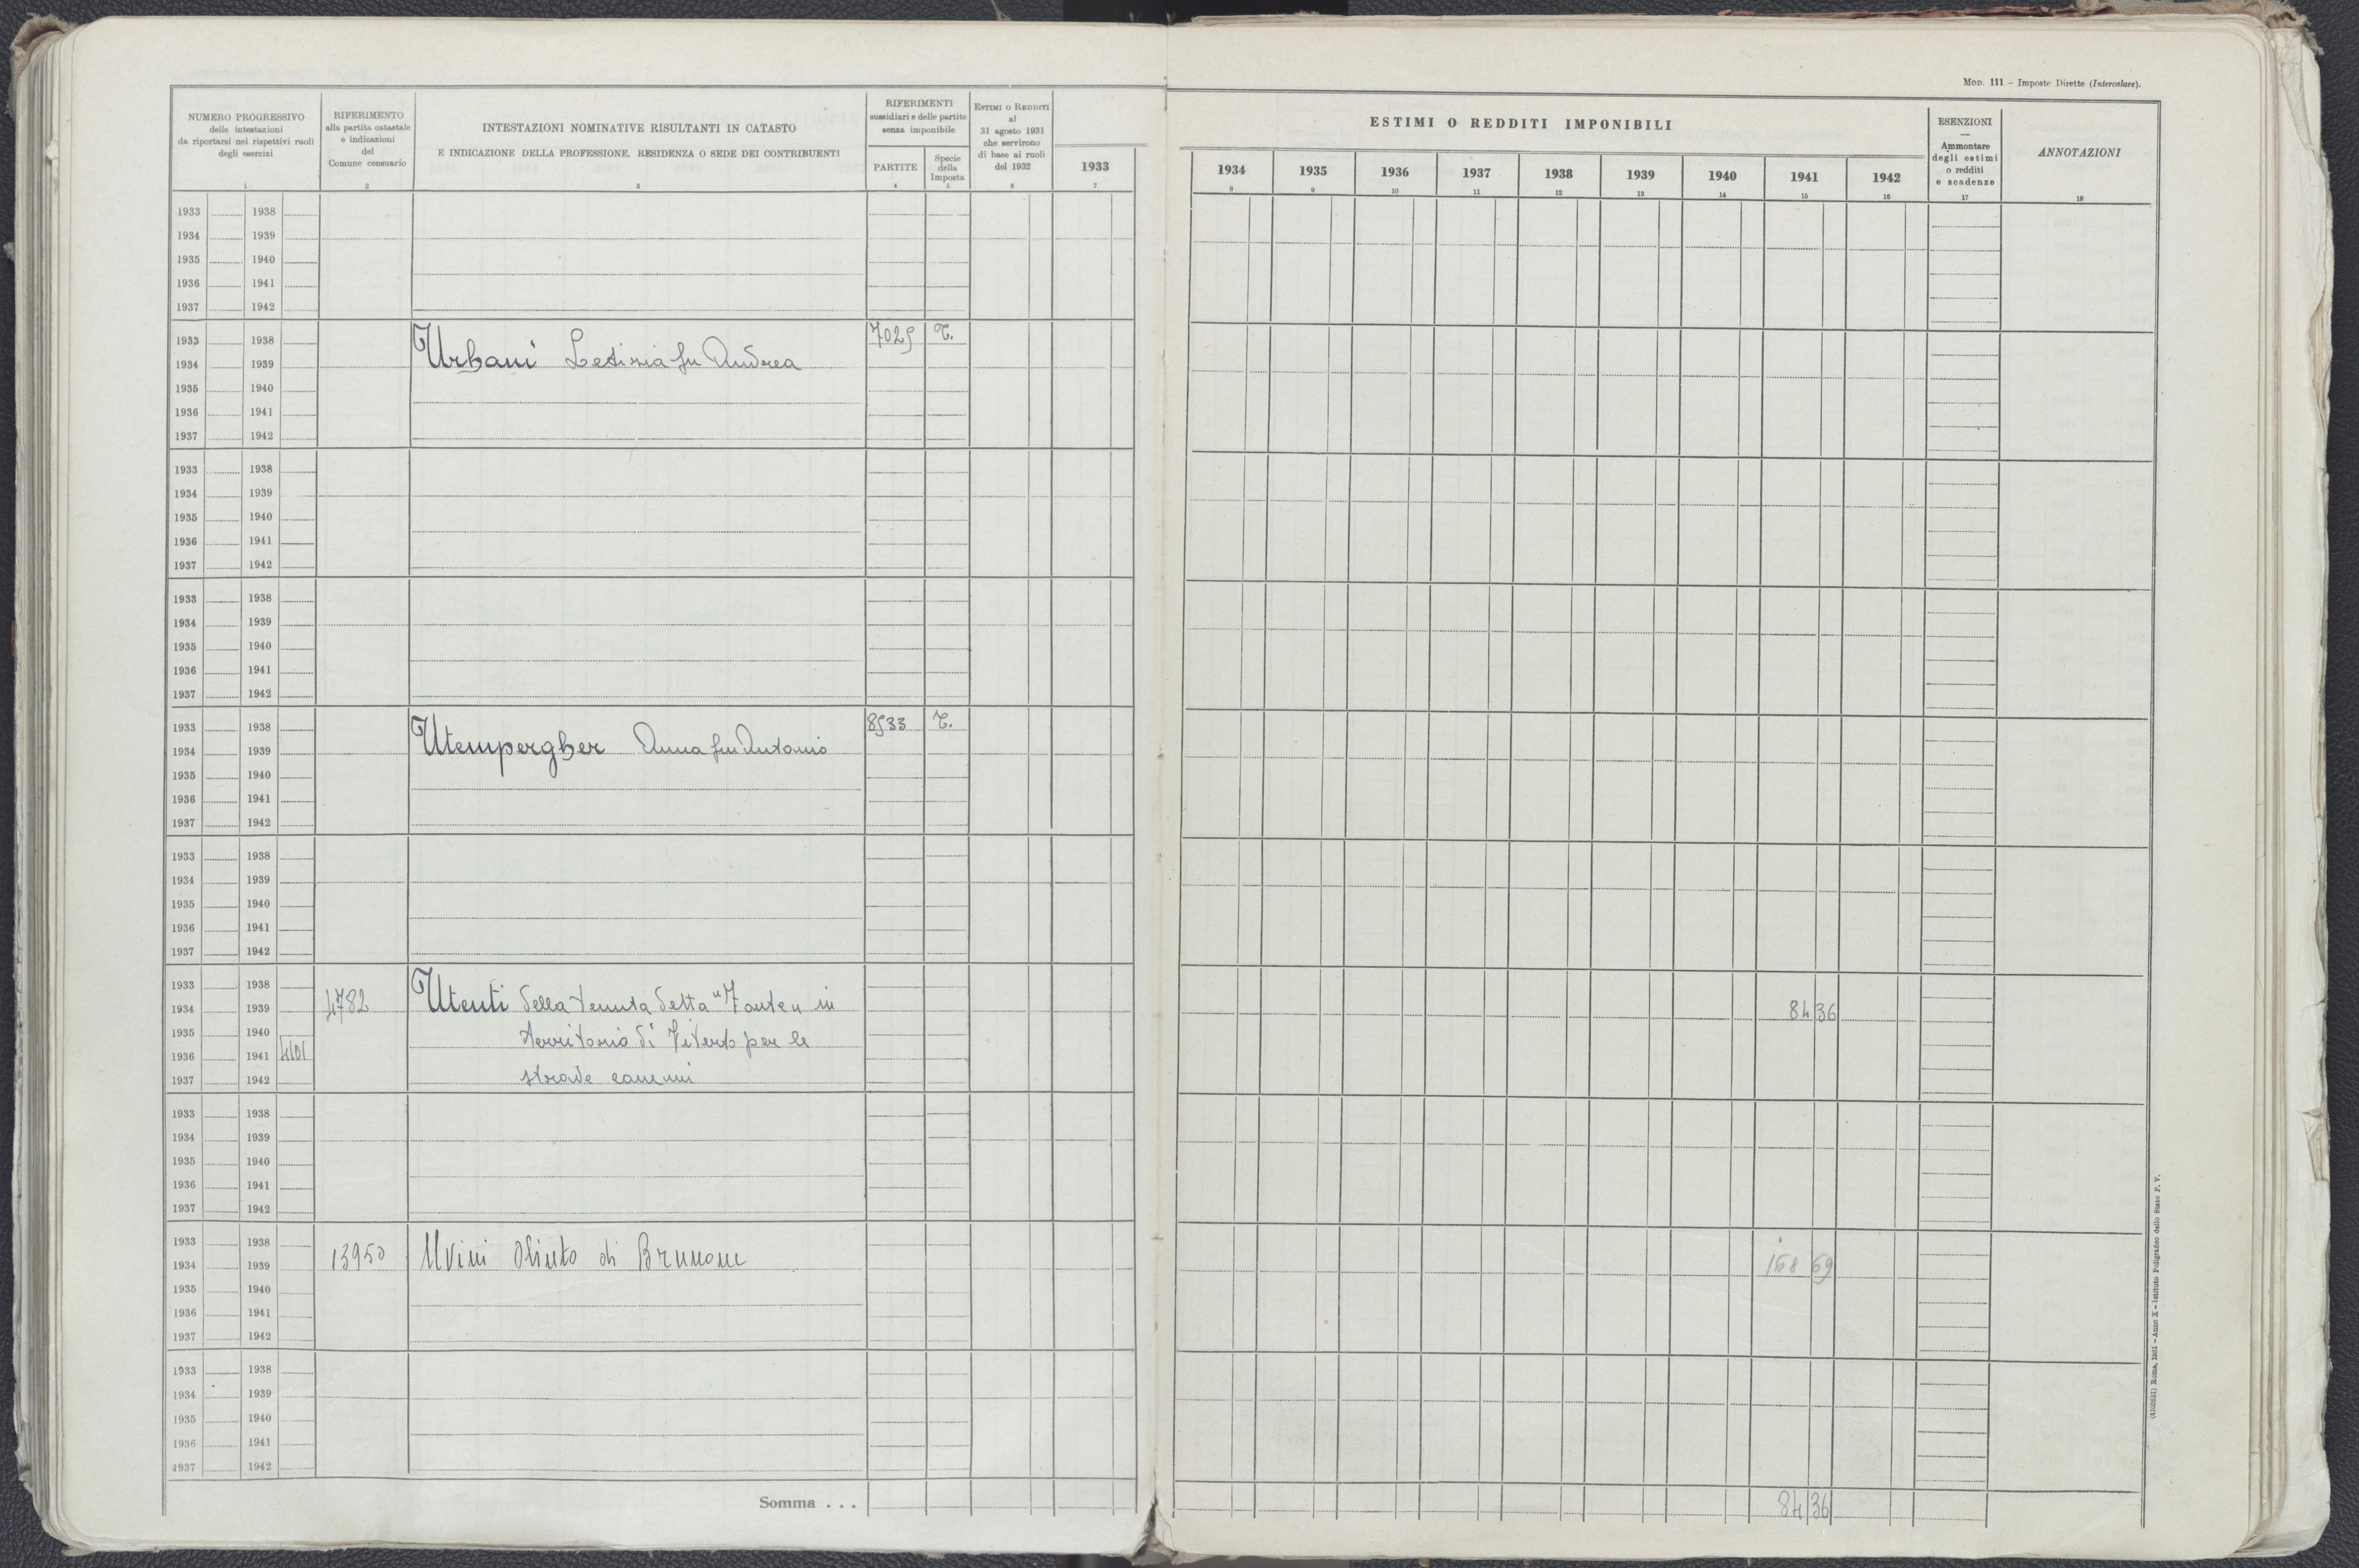 Mod. 111 – Imposte Dirette (Intercalare).
NUMERO PROGRESSIVO
delle intestazioni
da riportarsi nei rispettivi ruoli
degli esercizi
1
RIFERIMENTO
alla partita catastale
e indicazioni
del
Comune censuario
2
INTESTAZIONI NOMINATIVE RISULTANTI IN CATASTO
E INDICAZIONE DELLA PROFESSIONE, RESIDENZA O SEDE DEI CONTRIBUENTI
3
RIFERIMENTI
sussidiari e delle partite
senza imponibile
PARTITE
4
Specie
della
Imposta
5
Estimi o Redditi
al
31 agosto 1931
che servirono
di base ai ruoli
del 1932
6
1933
7
ESTIMI O REDDITI IMPONIBILI
1934 1935 1936 1937 1938 1939 1940 1941 1942
8 9 10 11 12 13 14 15 16
ESENZIONI
—
Ammontare
degli estimi
o redditi
e scadenze
17
ANNOTAZIONI
18
1933 1938
1934 1939
1935 1940
1936 1941
1937 1942
1933 1938 7025 T.
1934 1939 Urbani Letizia fu Andrea
1935 1940
1936 1941
1937 1942
1933 1938
1934 1939
1935 1940
1936 1941
1937 1942
1933 1938
1934 1939
1935 1940
1936 1941
1937 1942
1933 1938 8533 T.
1934 1939 Utempergher Anna fu Antonio
1935 1940
1936 1941
1937 1942
1933 1938
1934 1939
1935 1940
1936 1941
1937 1942
1933 1938
1934 1939 4782 Utenti della tenuta detta in 84 36
1935 1940
1936 1941 4101 territorio di Viterbo per le
1937 1942 strade comuni
1933 1938
1934 1939
1935 1940
1936 1941
1937 1942
1933 1938
1934 1939 13950 Uvini Olinto di Brunone 168 69
1935 1940
1936 1941
1937 1942
1933 1938
1934 1939
1935 1940
1936 1941
1937 1942
Somma . . . 84 36
Roma, 1931 – Anno X – Istituto Poligrafico dello Stato P. V.